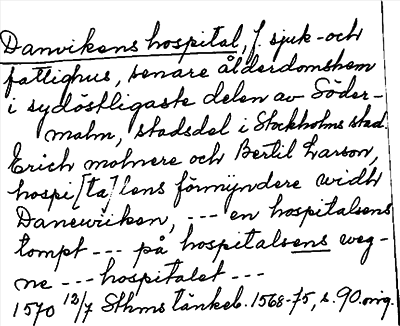 Danvikens hospital, f. sjuk- och
fattighus, senare ålderdomshem
i sydöstligaste delen av Söder-
malm, stadsdel i Stockholms stad.
Erich molnere och Bertil Larson,
hospi[ta]lens förmyndere widh
Danewiken, --- en hospitalsens
tompt --- på hospitalsens weg-
ne --- hospitalet ---
1570 12/7 Sthms tänkeb. 1568-75, s. 90. orig.